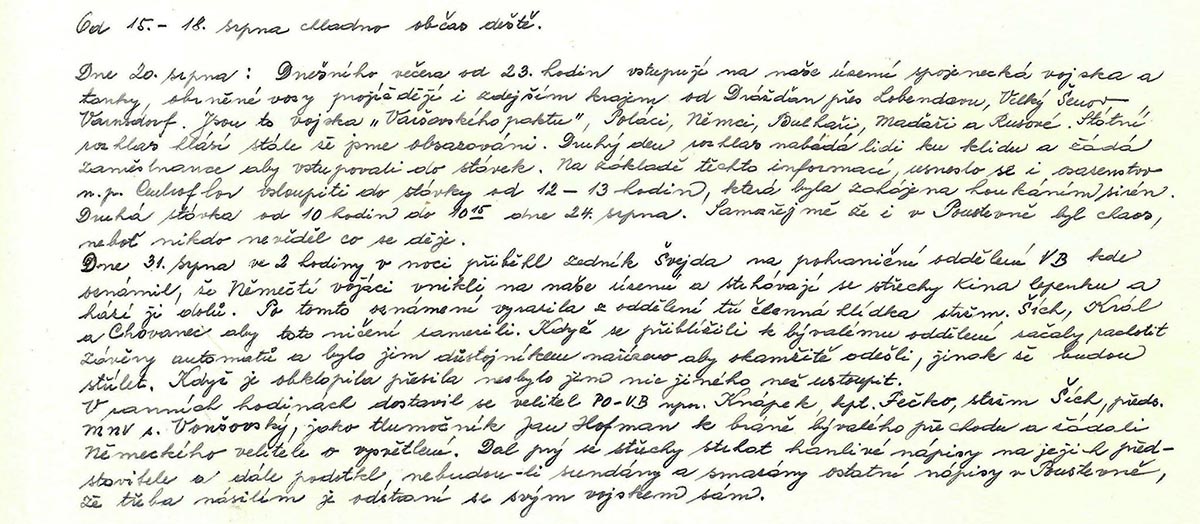 Od 15.- 18. srpna chladno občas deště.
Dne 20. srpna: Dnešního večera od 23. hodin vstupují na naše území spojenecká vojska a
tanky, obrněné vozy projíždějí i zdejším krajem od Drážďan přes Lobendavu, Velký Šenov
Varnsdorf. Jsou to vojska „Varšavského paktu", Poláci, Němci, Bulhaři, Maďaři a Rusové. Státní
rozhlas hlásí stále že jsme obsazováni. Druhý den rozhlas nabádá lidi ku klidu a žádá
zaměstnance aby vstupovali do stávek. Na základě těchto informací, usneslo se i osazenstvo
n.p. Centroflor vstoupiti do stávky od 12 – 13 hodin, která byla zahájena houkáním sirén.
Druhá stávka od 10 hodin do 10 15 dne 24. srpna. Samozřejmě že i v Poustevně byl chaos,
neboť nikdo nevěděl co se děje.
Dne 31. srpna ve 2 hodiny v noci přiběhl zedník Švejda na pohraniční oddělení VB kde
oznámil, že Němečtí vojáci vnikli na naše území a strhávají se střechy kina lepenku a
hází ji dolů. Po tomto oznámení vyrazila z oddělení tří členná hlídka stržm. Ších, Král
a Chovanec aby toto ničení zamezili. Když se přiblížili k bývalému oddělení začaly rachotit
závěry automatů a bylo jim důstojníkem nařízeno aby okamžitě odešli, jinak že budou
střílet. Když je obklopila přesila nezbylo jim nic jiného než ustoupit.
V ranních hodinách dostavil se velitel PO-VB npor. Knápek, kpt. Fečko, stržm Ších, předs.
MNV s. Vonšovský, jako tlumočník Jan Hofman k bráně bývalého přechodu a žádali
Německého velitele o vysvětlení. Dal prý se střechy strhat hanlivé nápisy na jejich před-
stavitele a dále podotkl, nebudou-li sundány a smazány ostatní nápisy v Poustevně,
že třeba násilím je odstraní se svým vojskem sám.